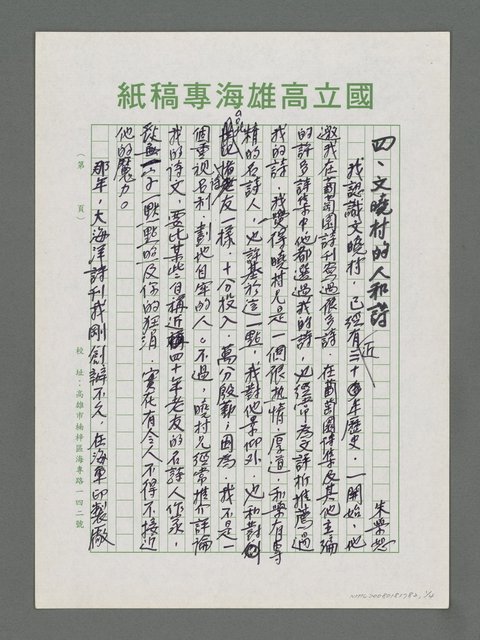 國立高雄海專稿紙
四、文曉村的人和詩
朱學恕
我認識文曉村,已經有近三十年歷史,一開始,他
邀我在葡萄園詩刊寫過很多詩,在葡萄園詩集及其他主編
的許多詩集中,他都選過我的詩,也經常為文評析推薦過
我的詩,我覺得曉村兄是一個很熱情、厚道,和學有專
精的名詩人,也許基於這一點,我對他景仰外,也和對
老友一樣,十分投入,萬分殷勤,因為,我不是一
個重視名利,劃地自牢的人。不過,曉村兄經常推介評論
我的詩文,要比某些自稱近四十年老友的名詩人作家,
一字,點點照及你的狂消,實在有令人不得不接近
他的魔力。
那年,大海洋詩刊我剛創辦不久,在海軍印製廠
(第 頁)
校址:高雄市楠梓區海專路一四二號